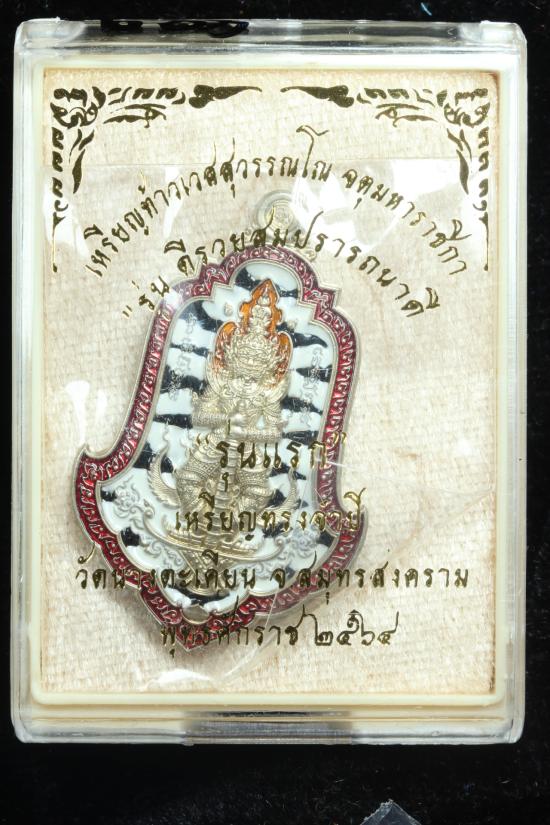 เหรียญท้าวเวสสุวรรณโณ จตุมหาราชิกา
"รุ่น ดีรวยสมปรารถนาดี"
"รุ่นแรก"
เหรียญทรงจำปี
วัดนางตะเคียน จ.สมุทรสงคราม
พุทธศักราช ๒๕๖๔